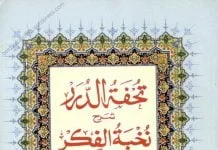 تحفة الدرر
شرح
نخبة الفكر